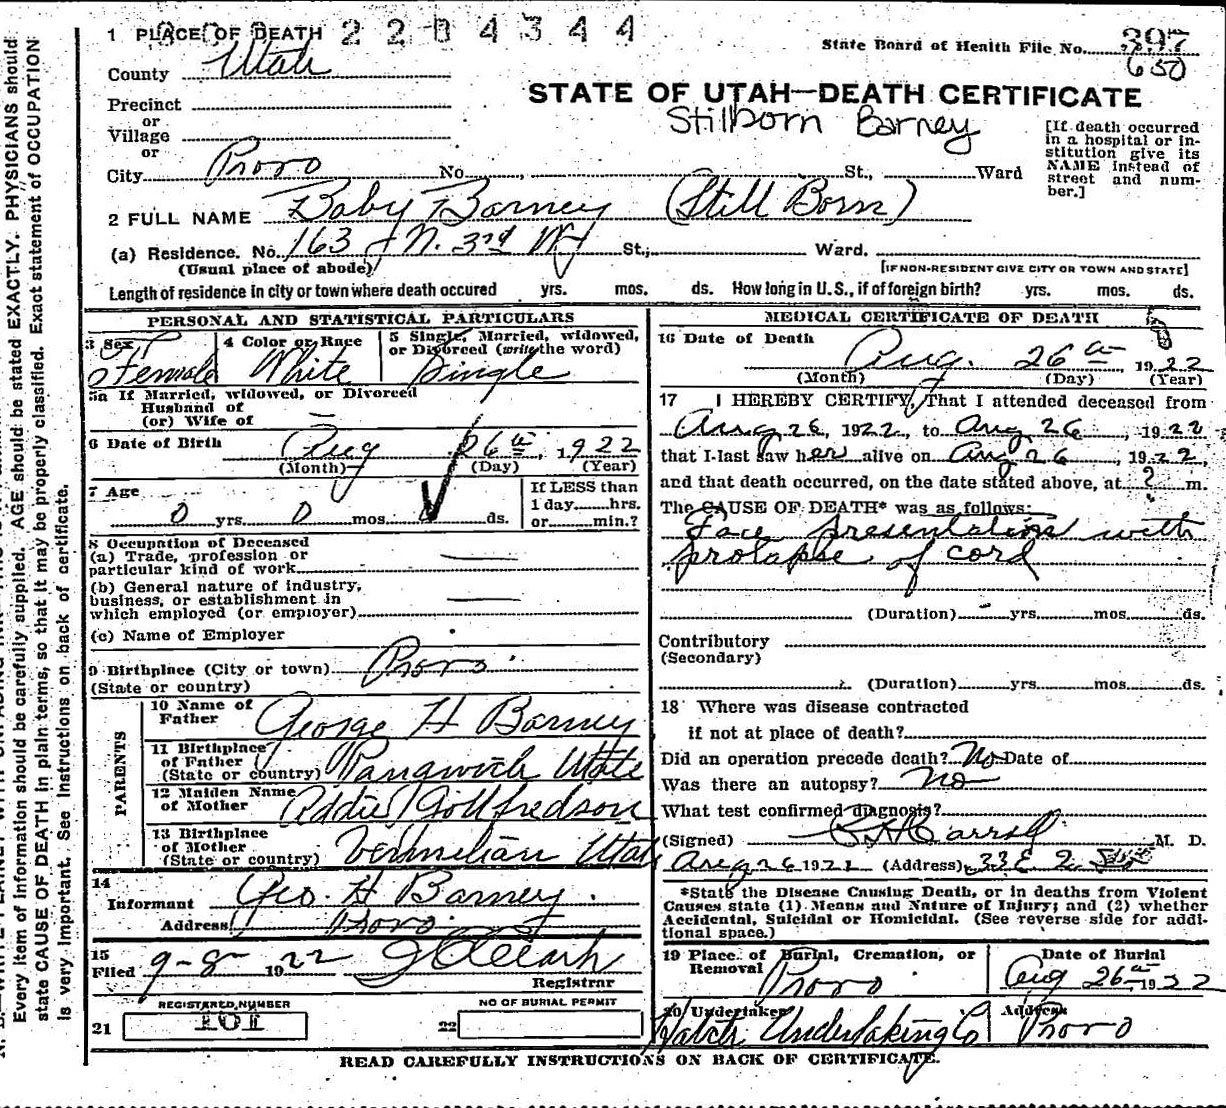 1 PLACE OF DEATH 2 2 0 4 3 4 4
State Board of Health File No. 397
650
County Utah
STATE OF UTAH—DEATH CERTIFICATE
Stillborn Barney
Precinct
or
Village
or
City Provo No. St., Ward
[If death occurred
in a hospital or in-
stitution give its
NAME instead of
street and num-
ber.]
2 FULL NAME Baby Barney (Still Born)
(a) Residence. No. 163 N. 3rd W St., Ward.
(Usual place of abode) [IF NON-RESIDENT GIVE CITY OR TOWN AND STATE]
Length of residence in city or town where death occured yrs. mos. ds. How long in U.S., if of foreign birth? yrs. mos. ds.
PERSONAL AND STATISTICAL PARTICULARS
3 Sex 4 Color or Race 5 Single, Married, widowed,
or Divorced (write the word)
Female White Single
5a If Married, widowed, or Divorced
Husband of
(or) Wife of
6 Date of Birth Aug 26th, 1922
(Month) (Day) (Year)
7 Age If LESS than
1 day hrs.
0 yrs 0 mos 0 ds. or min.?
8 Occupation of Deceased
(a) Trade, profession or
particular kind of work
(b) General nature of industry,
business, or establishment in
which employed (or employer)
(c) Name of Employer
9 Birthplace (City or town) Provo
(State or country)
PARENTS
10 Name of
Father George H Barney
11 Birthplace
of Father
(State or country) Pangwich Utah
12 Maiden Name
of Mother Addie Gottfredson
13 Birthplace
of Mother
(State or country) Vermilian Utah
14
Informant Geo. H Barney
Address Provo
15
Filed 9-8- 1922
Registrar
REGISTERED NUMBER NO OF BURIAL PERMIT
21 101 22
MEDICAL CERTIFICATE OF DEATH
16 Date of Death
Aug. 26th 1922
(Month) (Day) (Year)
17 I HEREBY CERTIFY, That I attended deceased from
Aug 26, 1922, to Aug 26, 1922
that I last saw her alive on Aug 26, 1922,
and that death occurred, on the date stated above, at ? m.
The CAUSE OF DEATH* was as follows:
Face presentation with
prolapse of cord
(Duration) yrs. mos. ds.
Contributory
(Secondary)
(Duration) yrs mos. ds.
18 Where was disease contracted
if not at place of death?
Did an operation precede death? No Date of
Was there an autopsy? No
What test confirmed diagnosis?
(Signed) Carroll M. D.
Aug 26 1922 (Address) 33 E 2
*State the Disease Causing Death, or in deaths from Violent
Causes state (1) Means and Nature of Injury; and (2) whether
Accidental, Suicidal or Homicidal. (See reverse side for addi-
tional space.)
19 Place of Burial, Cremation, or
Removal Provo
Date of Burial
Aug 26th 1922
20 Undertaker Hatch Undertaking Co
Address Provo
READ CAREFULLY INSTRUCTIONS ON BACK OF CERTIFICATE.
Every item of information should be carefully supplied. AGE should be stated EXACTLY. PHYSICIANS should
state CAUSE OF DEATH in plain terms, so that it may be properly classified. Exact statement of OCCUPATION
is very important. See Instructions on back of certificate.